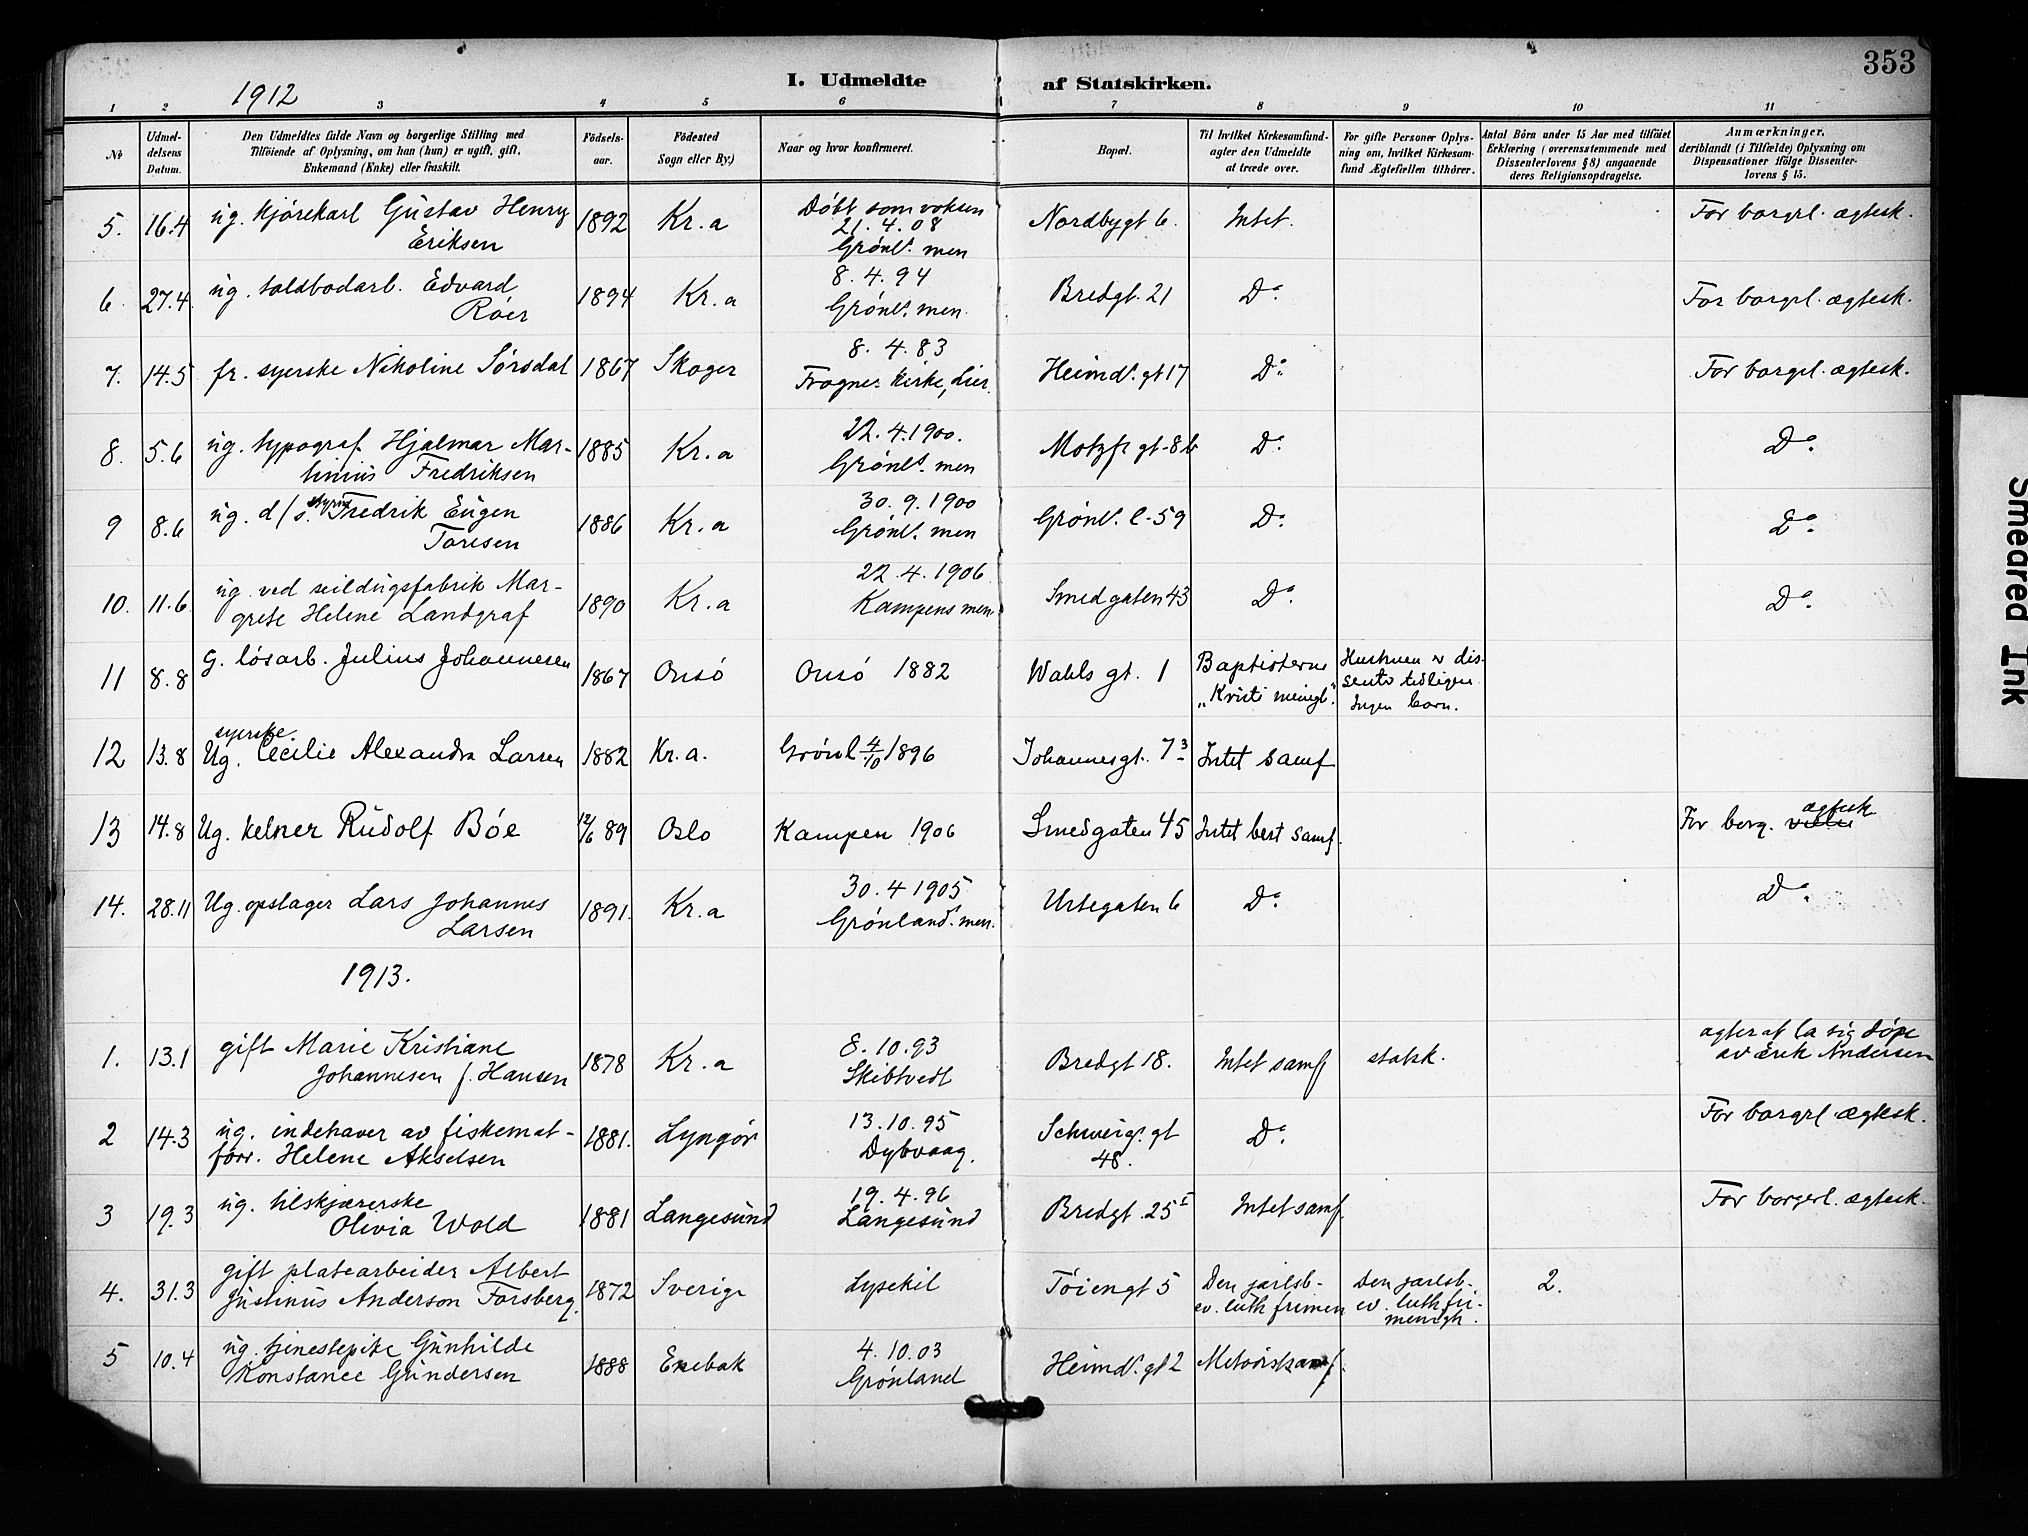 353
1912
I. Udmeldte af Statskirken.
1 2 3 4 5 6 7 8 9 10 11
No
Udmel-
delsens
Datum.
Den Udmeldtes fulde Navn og borgerlige Stilling med
Tilföiende af Oplysning, om han (hun) er ugift, gift,
Enkemand (Enke) eller fraskilt.
Födsels-
aar.
Födested
Sogn eller By.)
Naar og hvor konfirmeret.
Bopæl.
Til hvilket Kirkesamfund-
agter den Udmeldte
at træde over.
For gifte Personer Oplys-
ning om, hvilket Kirkesam-
fund Ægtefællen tilhörer.
Antal Börn under 15 Aar med tilföiet
Erklæring (overensstemmende med
Dissenterlovens § 8) angaaende
deres Religionsopdragelse.
Anmærkninger,
deriblandt (i Tilfælde) Oplysning om
Dispensationer ifölge Dissenter-
lovens § 15.
5. 16.4 ug. kjørekarl Gustav Henry
Eriksen
1892 Kr.a
Døbt som voksen
21.4.08
Grønl.s men
Nordbygt 6. Intet. For borgrl. ægtesk.
6. 27.4. ug. soldbodarb. Edvard
Róer
1894 Kr.a
8.4.94
Grønl.s men.
Bredgt. 21 Do For borgrl. ægtesk.
7. 14.5 fr. syerske Nikoline Sørsdal 1867 Skoger
8.4.83
Frogner kirke, Lier.
Heimd.s gt 17 Do For borgrl. ægtesk.
8. 5.6 ug. typograf Hjalmar Mar-
tinius Fredriksen
1885 Kr.a
22.4.1900.
Grønl.s men
Motzfs gt. 8b Do Do
9 8.6 ug. d/s. styrm Fredrik Eugen
Toresen
1886 Kr.a
30.9.1900
Grønl.s men
Grønl.s l. 59 Do Do
10. 11.6 ug. ved seildugsfabrik Mar-
grete Helene Landgraf
1890 Kr.a
22.4.1906
Kampens men.
Smedgaten 43 Do Do
11 8.8 G. løsarb. Julius Johannesen 1867 Onsó Onsó 1882 Wahls gt. 1
Baptisterne
"Kristi menigh".
Hustruen er dis-
senter tidligere.
Ingen barn.
12 13.8 syerske.
Ug. Cecilie Alexandra Larsen 1882 Kr.a. Grønl 4/10 1896 Johannesgt. 7 3 Intet samf
13 14.8 Ug. kelner Rudolf Bóe 12/6 89 Oslo Kampen 1906 Smedgaten 45 Intet best samf. For borg. ægtesk
14. 28.11 Ug. opslager Lars Johannes
Larsen
1891. Kr.a
30.4 1905
Grønland.s men.
Urtegaten 6 Do Do
1913.
1. 13.1 gift Marie Kristiane
Johannesen f. Hansen
1878 Kr.a
8.10.93
Skibtvedt
Bredgt 18. Intet samf statsk.
agter at la sig døpe
av Erik Andersen
2 14.3 ug. indehaver av fiskemat-
forr. Helene Akselsen
1881. Lyngør
13.10.95
Dybvaag.
Schweigs. gt
48.
Do For borgrl. ægtesk.
3 19.3 ug. tilskjærerske
Olivia Wold
1881 Langesund
19.4.96
Langesund
Bredgt. 25 I Intet samf. For borgerl. ægtesk.
4. 31.3 gift platearbeider Albert
Justinus Anderson Forsberg.
1872 Sverige Lysekil Tøiengt 5
Den jarlsb-
ev. luth frimen
Den jarlsb.
ev. luth fri-
menigh.
2.
5 10.4 ug. tjenestepike Gunhilde
Konstance Gundersen
1888 Enebak
4.10.03
Grønland
Heimd.s gt 2 Metodistsamf.
Smeared Ink